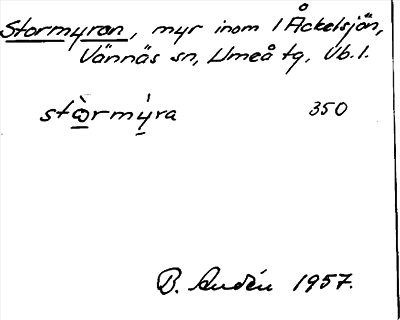 Stormyran, myr inom 1 Åckelsjön,
Vännäs sn, Umeå tg, Vb. l.
stòrmýra 350
B. Andén 1957.